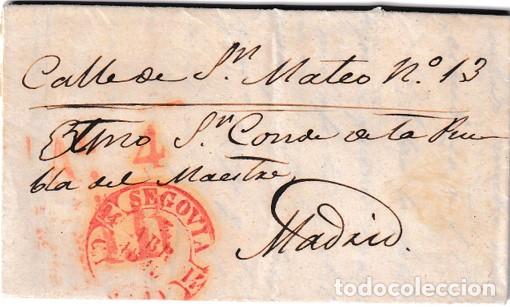 Calle de Sn. Mateo No. 13
Exmo Sr. Conde de la Pue
bla del Maestre
4
SEGOVIA
Madrid.
todocoleccion.net